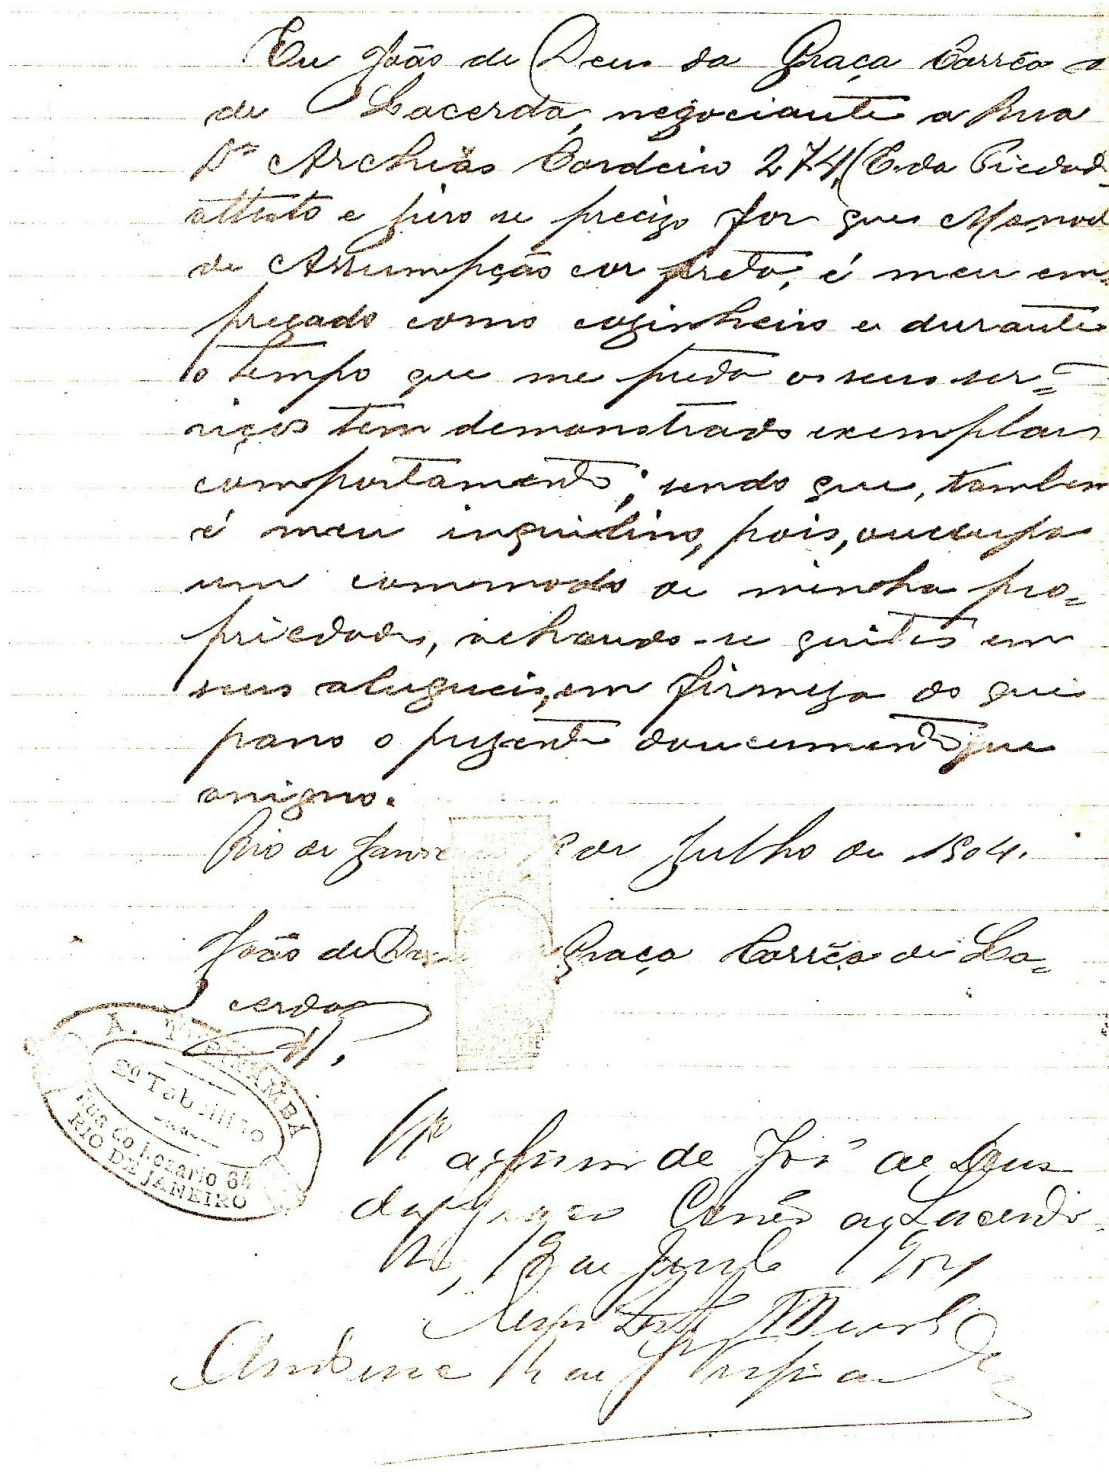 Eu João de Deus da Graça Corrêa
de Lacerda, negociante a Rua
Dr Archias Cordeiro 274, (E. da Piedade
attesto e juro se precizo for que Manoel
de Assumpção cor preta, é meu em-
pregado como cozinheiro e durante
o tempo que me presta os seus ser=
viços tem demonstrado exemplar
comportamento; sendo que, tambem
é meu inquilino, pois, occupa
um commodo de minha pro=
priedade, achando-se quites em
seus alugueis, em firmeza do que
passo o prezente documento que
assigno.
Rio de Janeiro de Julho de 1904.
João de Deus Graça Corrêa de La=
cerda
A. TUPINAMBÁ
2º Tabellião
Rua do Rozario 64
RIO DE JANEIRO
a firma de João de Deus
da Graça Corrêa de Lacerda
1904